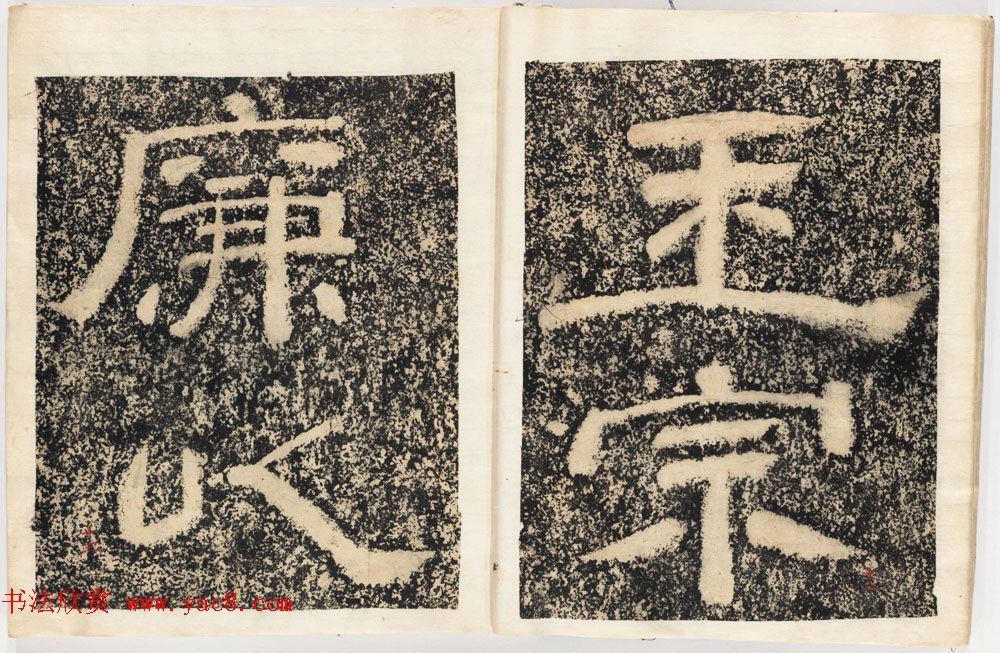 宗
廉以
书法欣赏 www.yac8.com